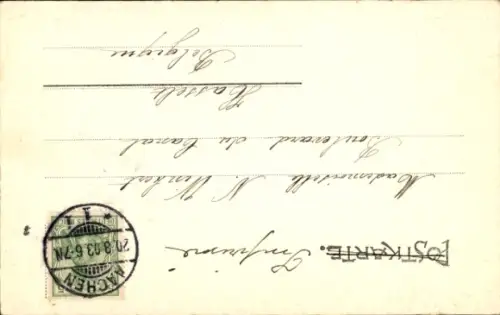 POSTKARTE.
Imprimé
Mademoiselle N.
Boulevard du Canal
Hasselt
Belgique
AACHEN
20.8.03.6-7N
* 1 f
5